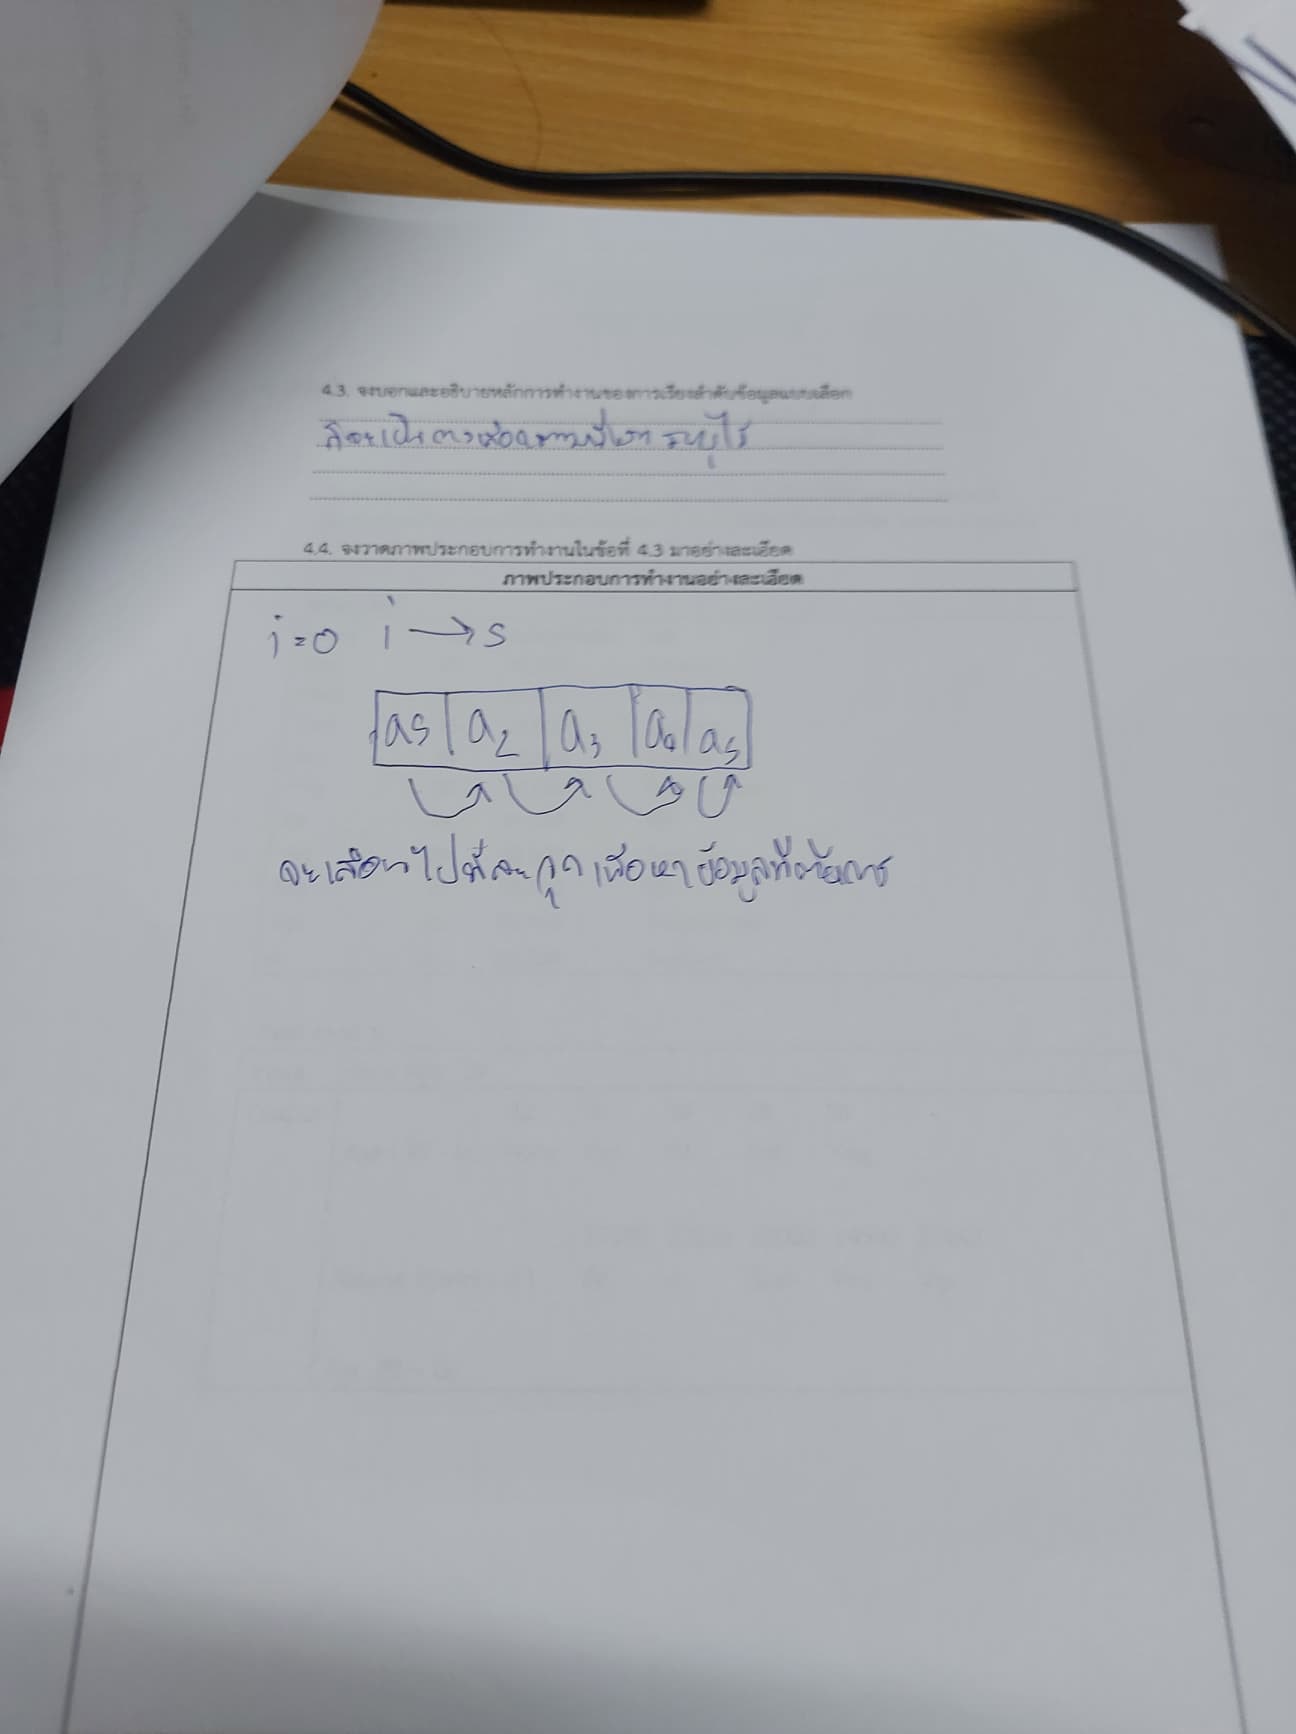 4.3. จงบอกและอธิบายหลักการทำงานของการเรียงลำดับข้อมูลแบบเลือก
ก็จะเป็นการเลือกตามที่เรา ระบุไว้
4.4. จงวาดภาพประกอบการทำงานในข้อที่ 4.3 มาอย่างละเอียด
ภาพประกอบการทำงานอย่างละเอียด
i=0 i → 5
a5 a2 a3 a4 a5
จะเลือกไปทีละจุด เพื่อหาข้อมูลที่ต้องการ